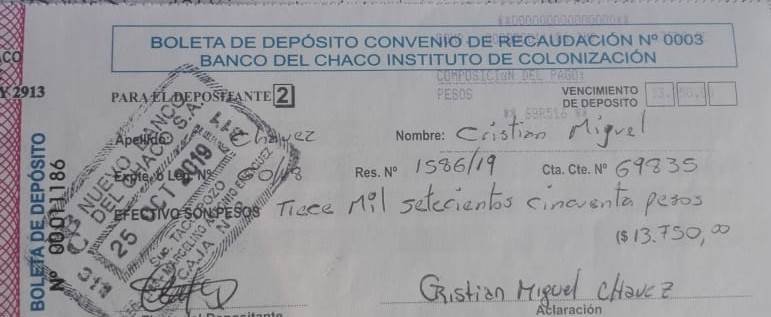 BOLETA DE DEPÓSITO CONVENIO DE RECAUDACIÓN Nº 0003
BANCO DEL CHACO INSTITUTO DE COLONIZACIÓN
COMPOSICION DEL PAGO:
CO
Y 2913
PARA EL DEPOSITANTE 2
PESOS
VENCIMIENTO
DE DEPOSITO
Apellido: Chavez
Nombre: Cristian Miguel
Expte. ó Leg. Nº
Res. Nº 1586/19
Cta. Cte. Nº 69835
EFECTIVO SON PESOS Tiece Mil setecientos cincuenta pesos
($ 13.750,00
NUEVO BANCO
DEL CHACO S.A.
311
25 OCT 2019
Suc. TACO POZO
CAJA Nº
311
BOLETA DE DEPÓSITO
Nº 00011186
Cristian Miguel Chavez
Aclaración